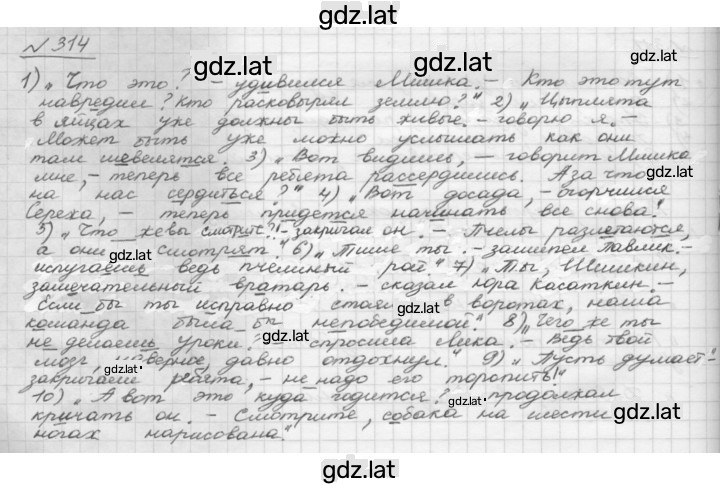 gdz.lat
№ 314
gdz.lat
gdz.lat
1) „Что это? – удивился Мишка. – Кто это тут
навредил? Кто расковырял землю?" 2) „Цыплята
в яйцах уже должны быть живые. – говорю я. –
Может быть уже можно услышать как они
там шевелятся. 3) „Вот видишь, – говорит Мишка
мне, – теперь все ребята рассердились. А за что
на нас сердиться?" 4) „Вот досада, – огорчился
gdz.lat
gdz.lat
Сереха, – теперь придется начинать все снова."
5) „Что же вы смотрите?! – закричал он. – Пчелы разлетаются,
а они смотрят." 6) „Тише ты. – зашипел Павлик. –
gdz.lat
испугаешь ведь пчелиный рой." 7) „Ты, Шишкин,
замечательный вратарь. – сказал Юра Касаткин. –
Если бы ты исправно стоял в воротах, наша
команда была бы непобедимой." 8) „Чего же ты
gdz.lat
не делаешь уроки? – спросила Лика. – Ведь твой
мозг, наверное, давно отдохнул." 9) „Пусть думает –
gdz.lat
закричали ребята, – не надо его торопить!"
10) „А вот это куда годится? – продолжал
gdz.lat
кричать он. – Смотрите, собака на шести
ногах нарисована."
gdz.lat